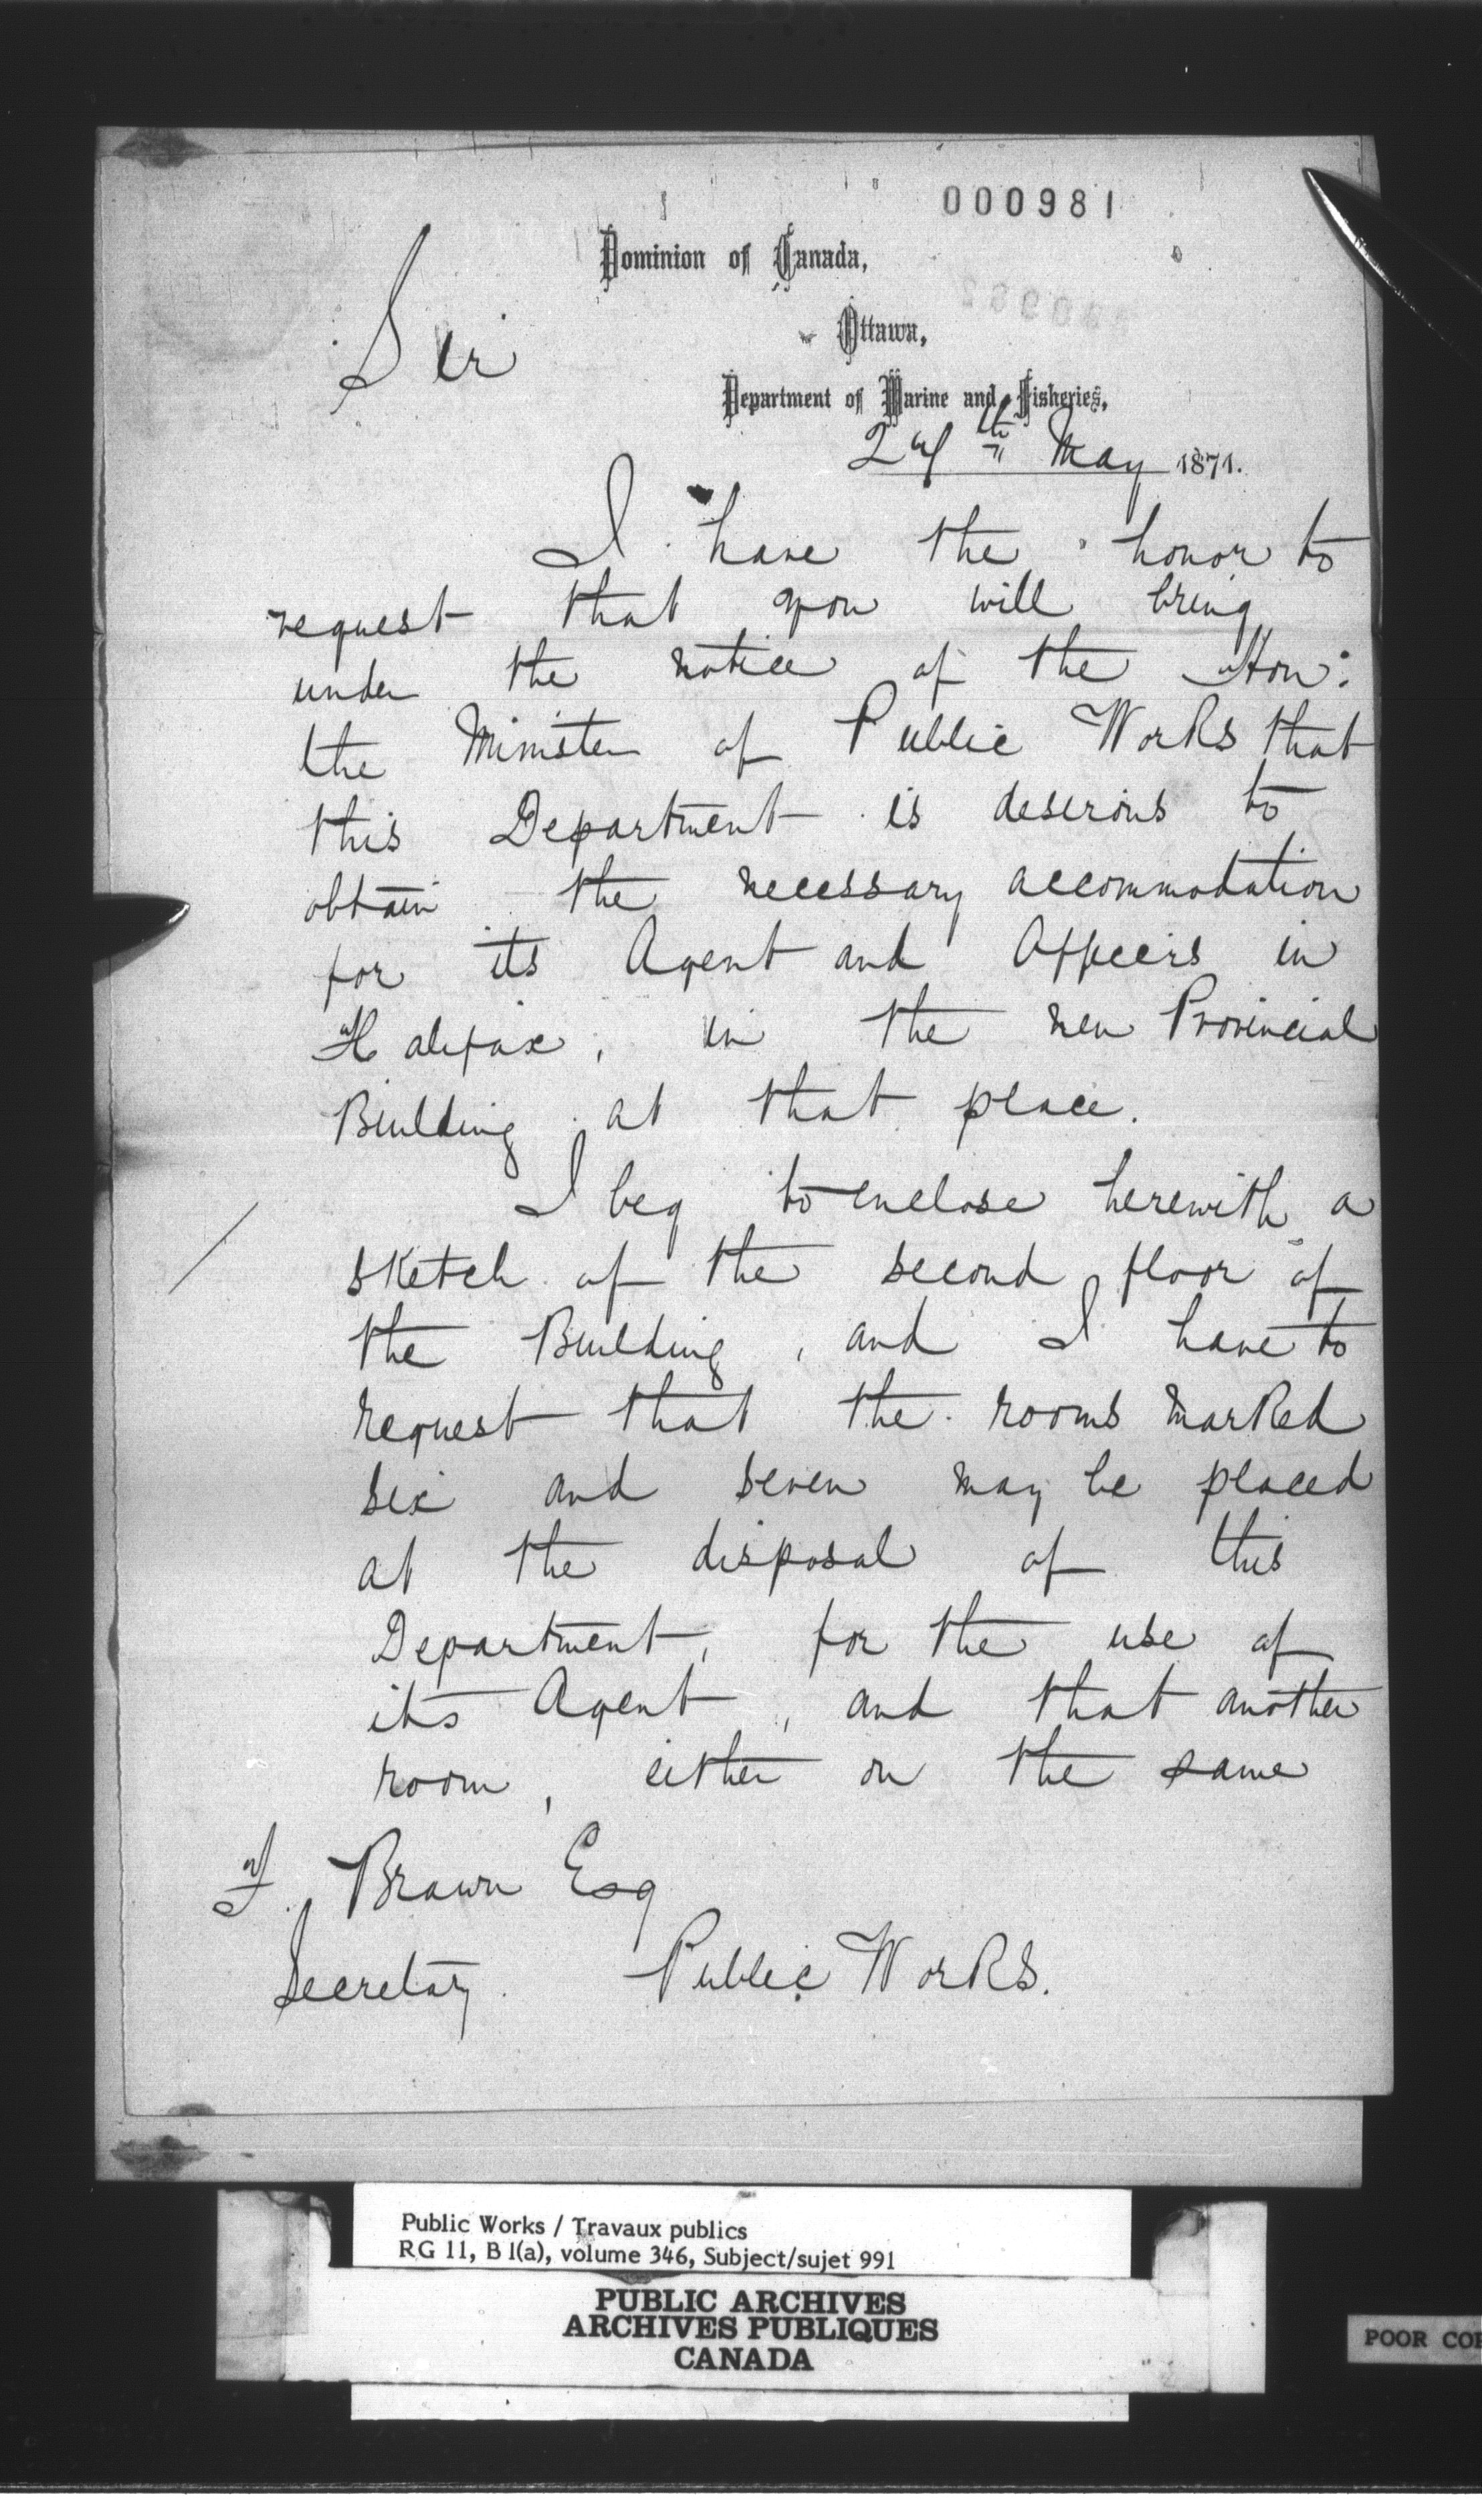 000981
Dominion of Canada,
Ottawa,
Sir
Department of Marine and Fisheries,
May 1871.
I have the honor to
request that you will bring
under the notice of the Hon:
the Minister of Public Works that
this Department is desirous to
obtain the necessary accommodation
for its Agent and Officers in
Halifax, in the new Provincial
Building at that place.
I beg to enclose herewith a
sketch of the second floor of
the Building, and I have to
request that the rooms marked
six and seven may be placed
at the disposal of this
Department, for the use of
its Agent, and that another
room, either on the same
F. Braun Esq
Secretary Public Works.
Public Works / Travaux publics
RG 11, B1(a), volume 346, Subject/sujet 991
PUBLIC ARCHIVES
ARCHIVES PUBLIQUES
CANADA
POOR